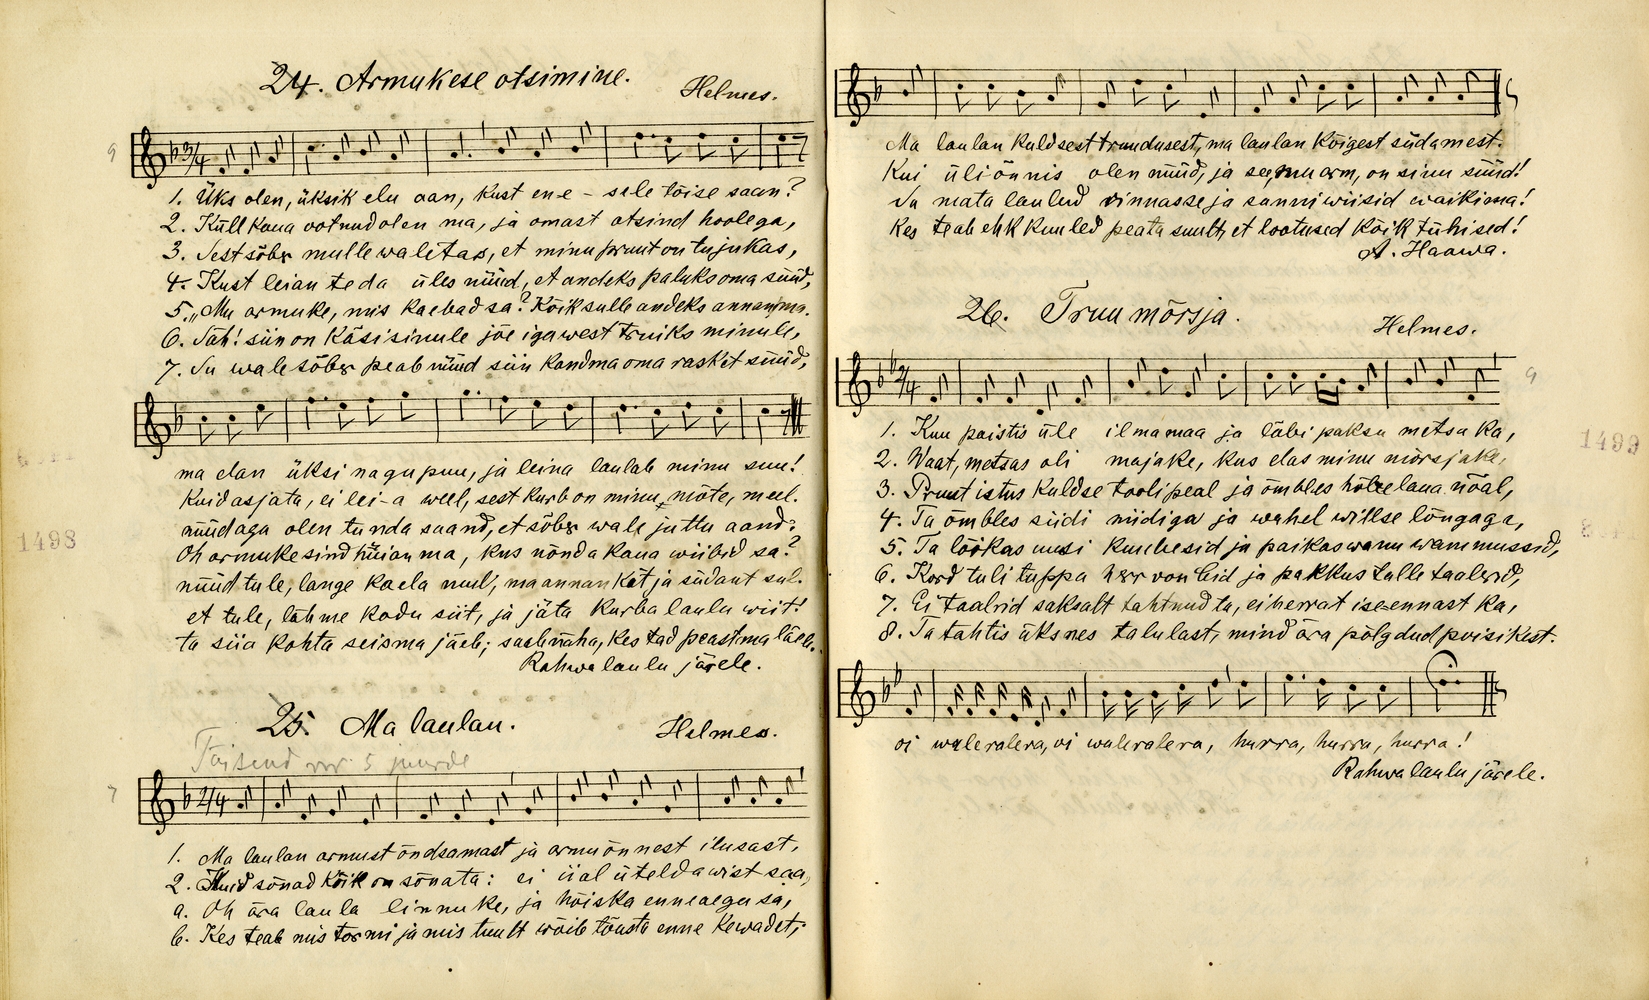 24. Armukese otsimine.
Helmes.
9
1. Üks olen, üksik elu aan, kust ene-sele tõise saan?
2. Küll kaua ootnud olen ma, ja omast otsind hoolega,
3. Sest sõber mulle waletas, et minu pruut on tujukas,
4. Kust leian teda üles nüüd, et andeks paluks oma süüd,
5. „Mu armuke, mis kaebad sa? Kõik sulle andeks annan ma.
6. Säh! siin on käsi sinule jõe igawest truiks minule,
7. Su wale sõber peab nüüd siin kandma oma rasket süüd,
ma elan üksi nagu puu, ja leina laulab minu suu!
kuid asjata, ei lei-a weel, sest kurb on minu mõte, meel.
nüüd aga olen tunda saand, et sõber wale juttu aand:
Oh armuke sind hüian ma, kus nõnda kaua wiibid sa?
nüüd tule, lange kaela mul', ma annan kät ja südant sul.
et tule, lähme kodu siit, ja jäta kurba laulu wiit!
ta siia kohta seisma jäeb; saab näha, kes tad peastma läeb.
Rahwalaulu järele.
1498
25. Ma laulan.
Helmes.
Tõisend nr. 5 juurde
7
1. Ma laulan armust õndsamast ja armuõnnest ilusast,
2. Kuid sõnad kõik on sõnata: ei iial ütelda wist saa,
a. Oh ära laula linnuke, ja hõiska enneaegu sa,
b. Kes teab mis tormi ja mis tuult wõib tõusta enne kewadet,
Ma laulan kuldsest truudusest, ma laulan kõigest südamest.
Kui üliõnnis olen nüüd, ja see, mu arm, on sinu süüd!
Su mata laulud rinnasse ja sunni wiisid waikima!
Kes teab ehk kuuled peata suult, et lootused kõik tühised!
A. Haawa.
26. Truu mõrsja.
Helmes.
9
1. Kuu paistis üle ilmamaa ja läbi paksu metsa ka,
2. Waat, metsas oli majake, kus elas minu mõrsjake,
3. Pruut istus kuldse tooli peal ja õmbles hõbelana nõal,
4. Ta õmbles siidi niidiga ja wahel willse lõngaga,
5. Ta löökas uusi kuubesid ja paikas wanu wammussid,
6. Kord tuli tuppa herr von Leid ja pakkus talle taalrid,
7. Ei taalrid saksalt tahtnud ta, ei herrat ise ennast ka,
8. Ta tahtis üksnes talulast, mind ära põlgdud poisikest.
1499
oi waleralera, oi waleralera, hurra, hurra, hurra!
Rahwalaulu järele.